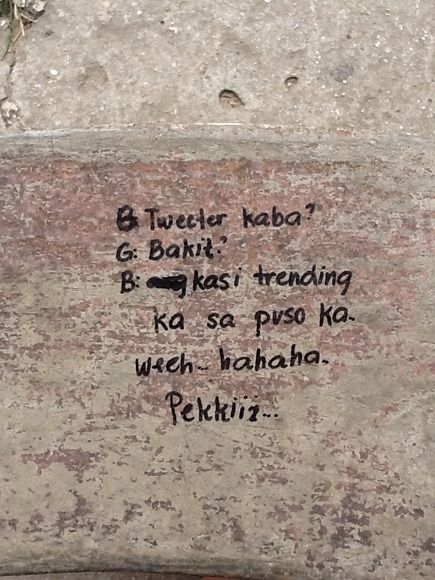 B Tweeter kaba?
G: Bakit?
B: kasi trending
ka sa puso ka.
weeh.. hahaha.
Pekkiii...